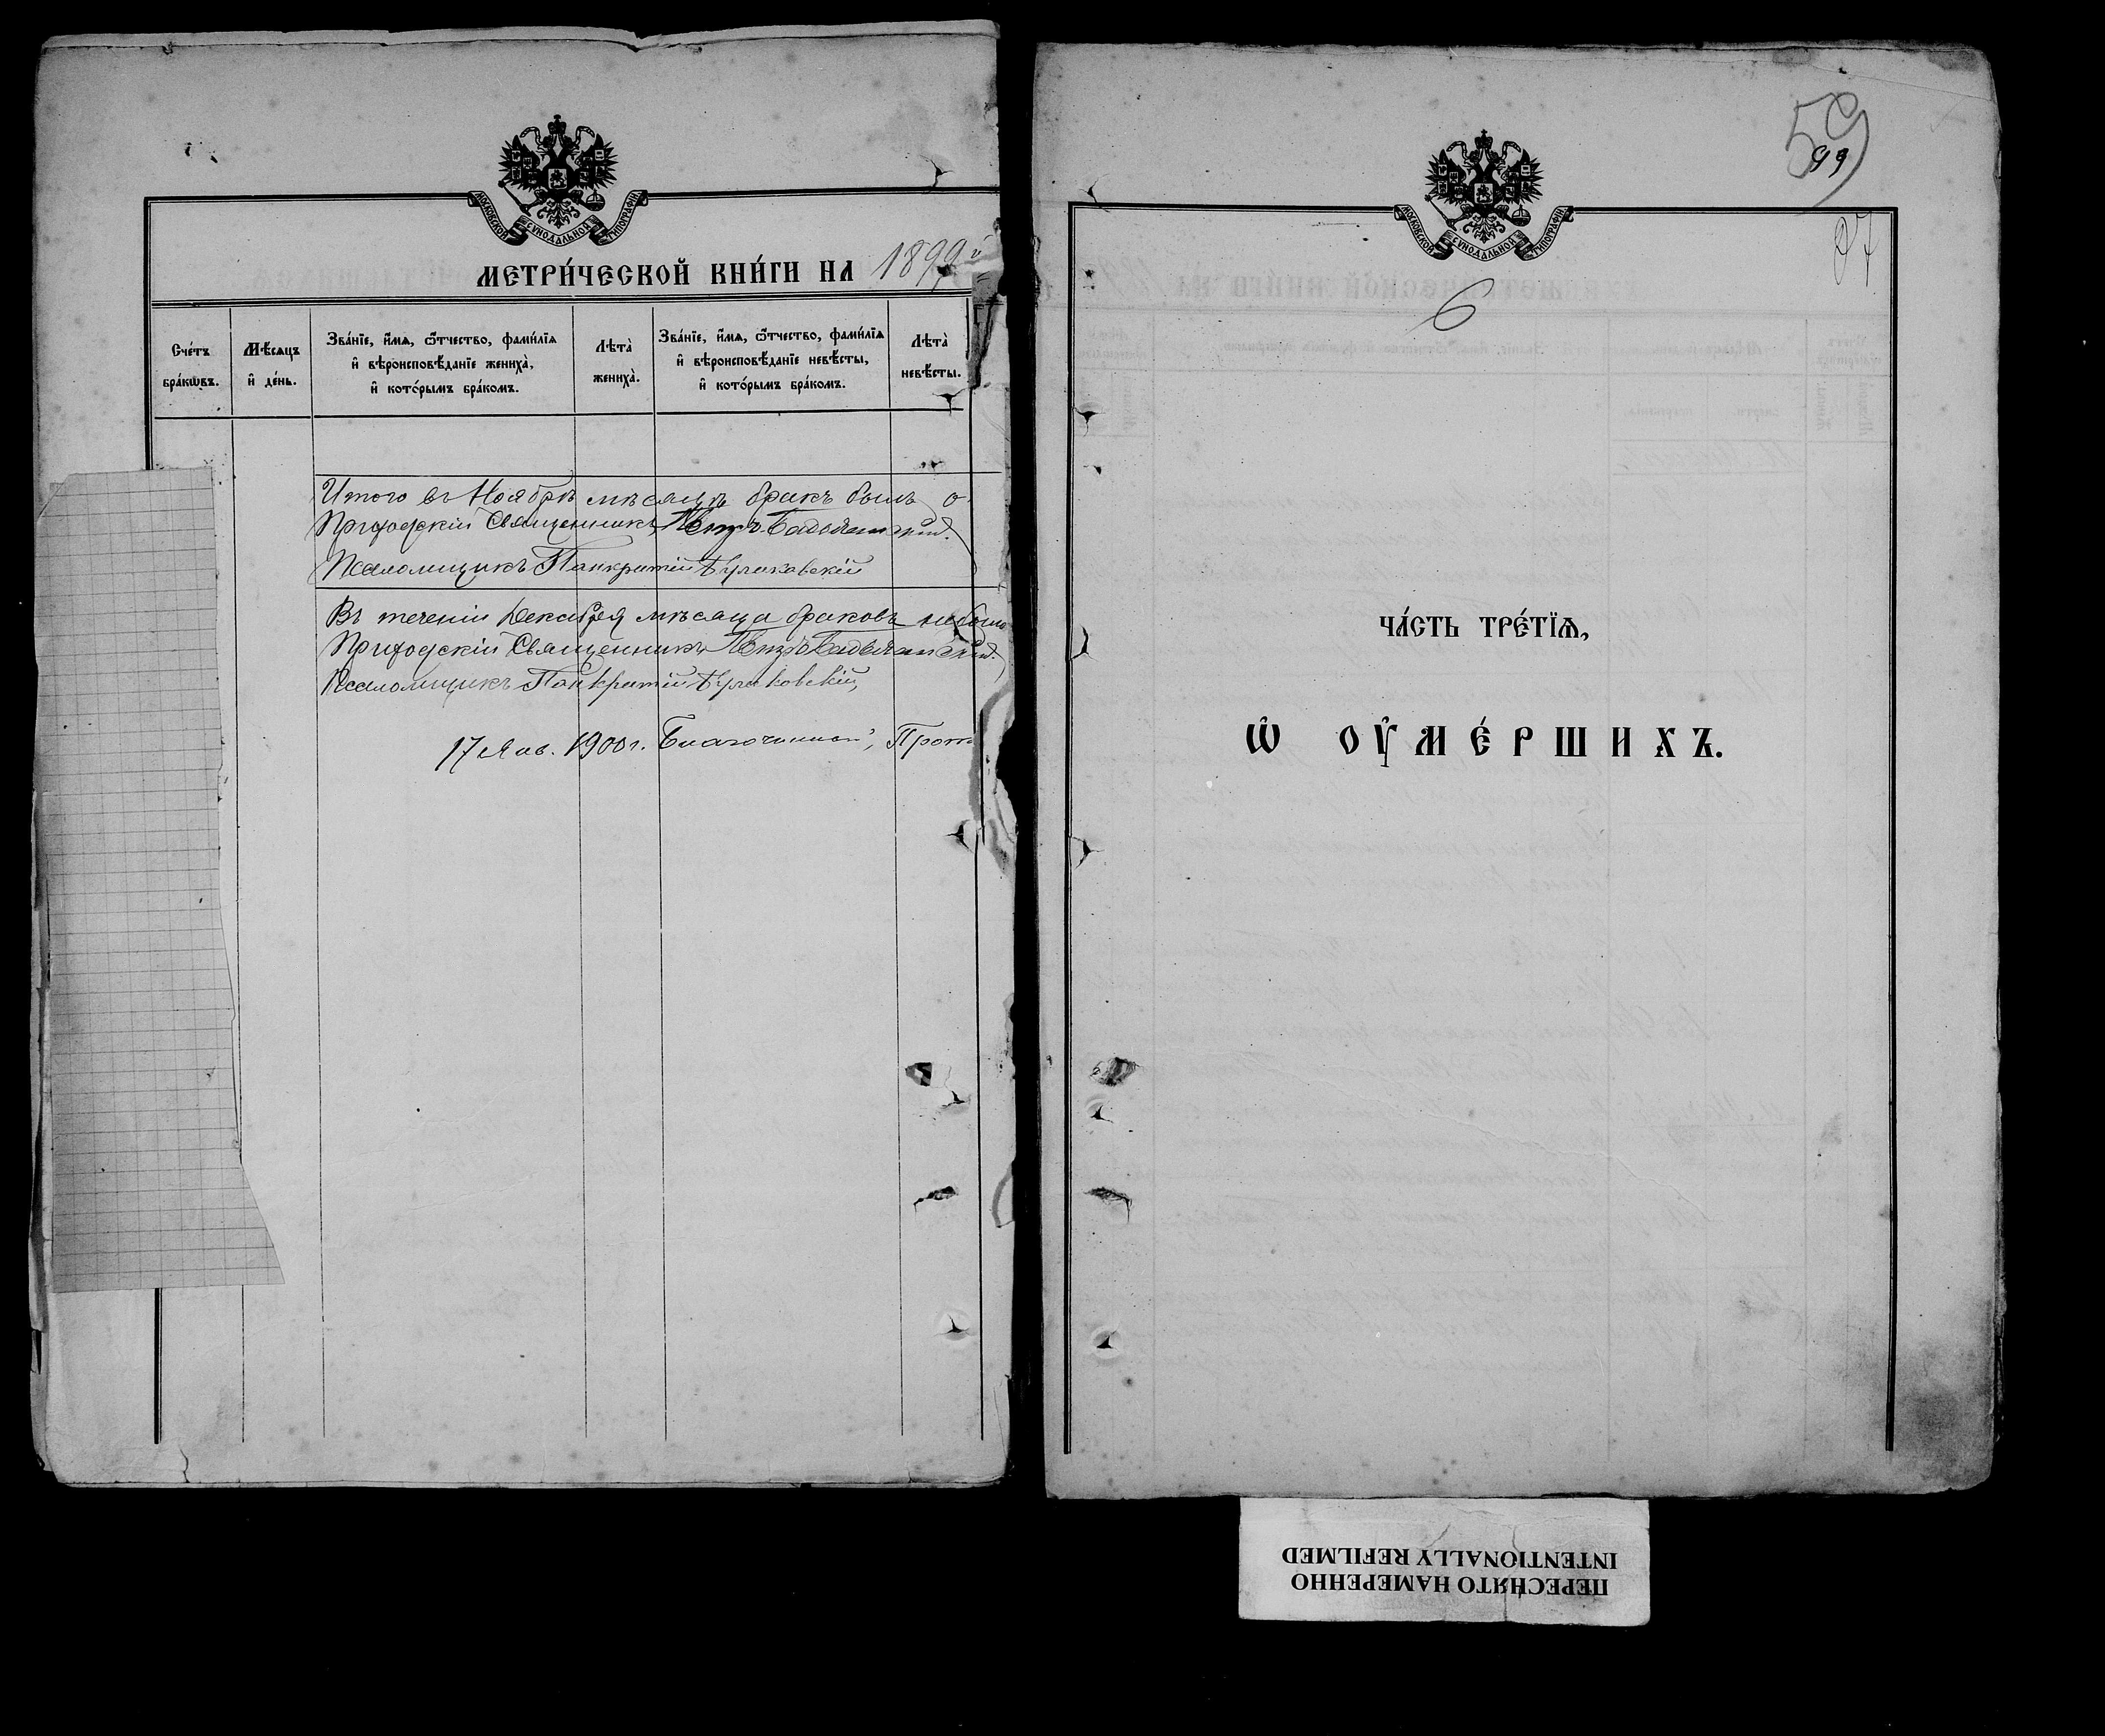 МОСКОВСКОЙ СѴНОДАЛЬНОЙ ТИПОГРАФІИ
МЕТРИ́ЧЕСКОЙ КНИ́ГИ НА 1899й
Сче́тъ бра́кѡвъ.
Мѣ́сяцъ и҆ де́нь.
Зва́нїе, и҆́мѧ, ѻ҆́тчество, фами́лїѧ
и҆ вѣроисповѣ́данїе жениха̀,
и҆ кото́рымъ бра́комъ.
Лѣта̀ жениха̀.
Зва́нїе, и҆́мѧ, ѻ҆́тчество, фами́лїѧ
и҆ вѣроисповѣ́данїе невѣ́сты,
и҆ кото́рымъ бра́комъ.
Лѣта̀ невѣ́сты.
Итого въ Ноябрѣ мѣсяцѣ бракъ былъ о
Приходскій Священникъ Петръ
Псаломщикъ Панкратій
Въ теченіи Декабря мѣсяца браковъ небыло
Приходскій Священникъ Петръ
Псаломщикъ Панкратій
17 Янв. 1900 г. Благочинный, Прот
59
99
МОСКОВСКОЙ СѴНОДАЛЬНОЙ ТИПОГРАФІИ
6
ЧА́СТЬ ТРЕ́ТЇѦ,
Ѡ҆ ОУ҆МЕ́РШИХЪ.
ПЕРЕСНЯТО НАМЕРЕННО
INTENTIONALLY REFILMED